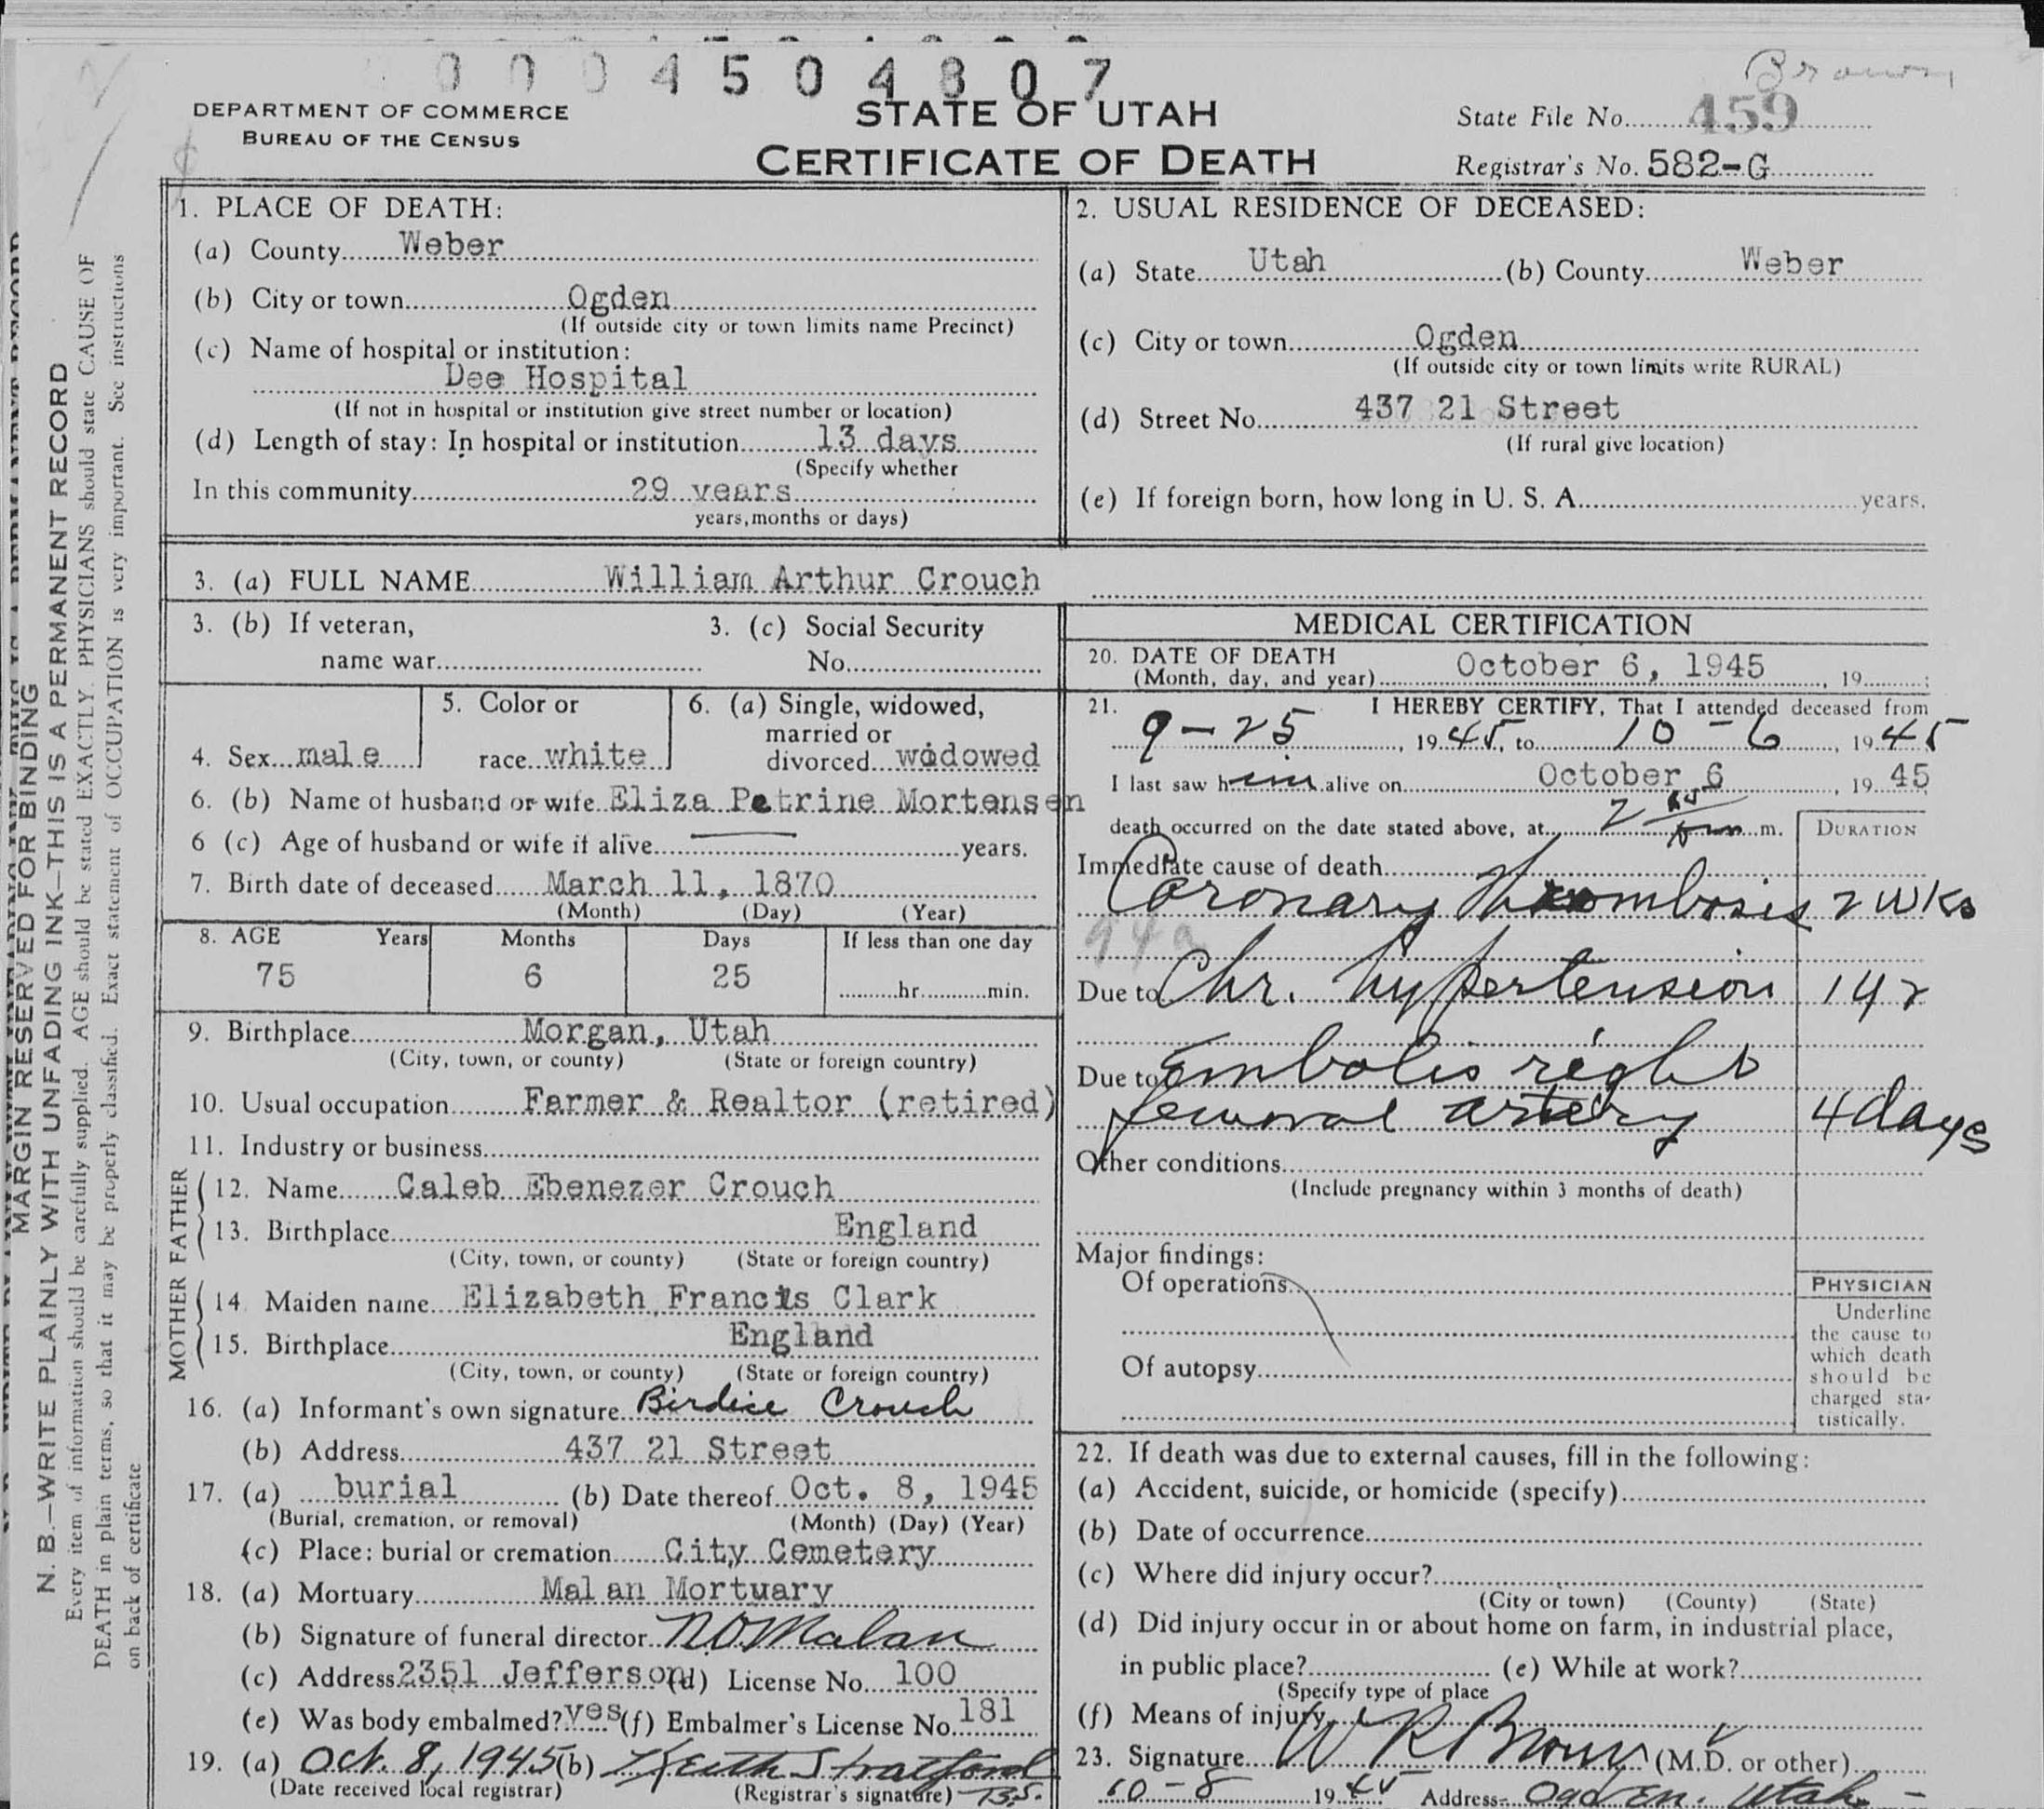 0004504807
Brown
DEPARTMENT OF COMMERCE
BUREAU OF THE CENSUS
STATE OF UTAH
CERTIFICATE OF DEATH
State File No. 459
Registrar's No. 582-G
MARGIN RESERVED FOR BINDING
N. B.—WRITE PLAINLY WITH UNFADING INK—THIS IS A PERMANENT RECORD
Every item of information should be carefully supplied. AGE should be stated EXACTLY. PHYSICIANS should state CAUSE OF
DEATH in plain terms, so that it may be properly classified. Exact statement of OCCUPATION is very important. See instructions
on back of certificate
1. PLACE OF DEATH:
(a) County Weber
(b) City or town Ogden
(If outside city or town limits name Precinct)
(c) Name of hospital or institution:
Dee Hospital
(If not in hospital or institution give street number or location)
(d) Length of stay: In hospital or institution 13 days
(Specify whether
In this community 29 years
years, months or days)
2. USUAL RESIDENCE OF DECEASED:
(a) State Utah (b) County Weber
(c) City or town Ogden
(If outside city or town limits write RURAL)
(d) Street No. 437 21 Street
(If rural give location)
(e) If foreign born, how long in U. S. A. years.
3. (a) FULL NAME William Arthur Crouch
3. (b) If veteran,
name war
3. (c) Social Security
No.
4. Sex male
5. Color or
race white
6. (a) Single, widowed,
married or
divorced widowed
6. (b) Name of husband or wife Eliza Petrine Mortensen
6 (c) Age of husband or wife if alive — years.
7. Birth date of deceased March 11, 1870
(Month) (Day) (Year)
8. AGE Years Months Days If less than one day
75 6 25 hr. min.
9. Birthplace Morgan, Utah
(City, town, or county) (State or foreign country)
10. Usual occupation Farmer & Realtor (retired)
11. Industry or business
FATHER
12. Name Caleb Ebenezer Crouch
13. Birthplace England
(City, town, or county) (State or foreign country)
MOTHER
14. Maiden name Elizabeth Francis Clark
15. Birthplace England
(City, town, or county) (State or foreign country)
16. (a) Informant's own signature Birdice Crouch
(b) Address 437 21 Street
17. (a) burial (b) Date thereof Oct. 8, 1945
(Burial, cremation, or removal) (Month) (Day) (Year)
(c) Place: burial or cremation City Cemetery
18. (a) Mortuary Malan Mortuary
(b) Signature of funeral director N O Malan
(c) Address 2351 Jefferson (d) License No. 100
(e) Was body embalmed? yes (f) Embalmer's License No. 181
19. (a) Oct. 8, 1945 (b) Keith Stratford
(Date received local registrar) (Registrar's signature) B.S.
MEDICAL CERTIFICATION
20. DATE OF DEATH
(Month, day, and year) October 6, 1945, 19 ;
21. I HEREBY CERTIFY, That I attended deceased from
9-25, 1945, to 10-6, 1945
I last saw him alive on October 6, 19 45
death occurred on the date stated above, at 2 m.
DURATION
Immediate cause of death
Coronary Thrombosis 2 wks
94a
Due to Chr. hypertension 1 yr
Due to Embolis right
femoral artery 4 days
Other conditions
(Include pregnancy within 3 months of death)
Major findings:
Of operations
Of autopsy
PHYSICIAN
Underline
the cause to
which death
should be
charged sta-
tistically.
22. If death was due to external causes, fill in the following:
(a) Accident, suicide, or homicide (specify)
(b) Date of occurrence
(c) Where did injury occur?
(City or town) (County) (State)
(d) Did injury occur in or about home on farm, in industrial place,
in public place? (e) While at work?
(Specify type of place
(f) Means of injury
23. Signature W R Brown (M.D. or other)
10-8 1945 Address Ogden, Utah